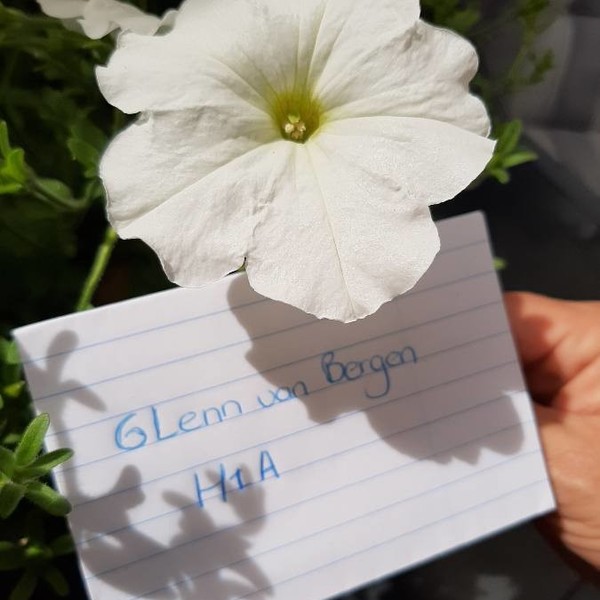 GLenn van Bergen
H1A